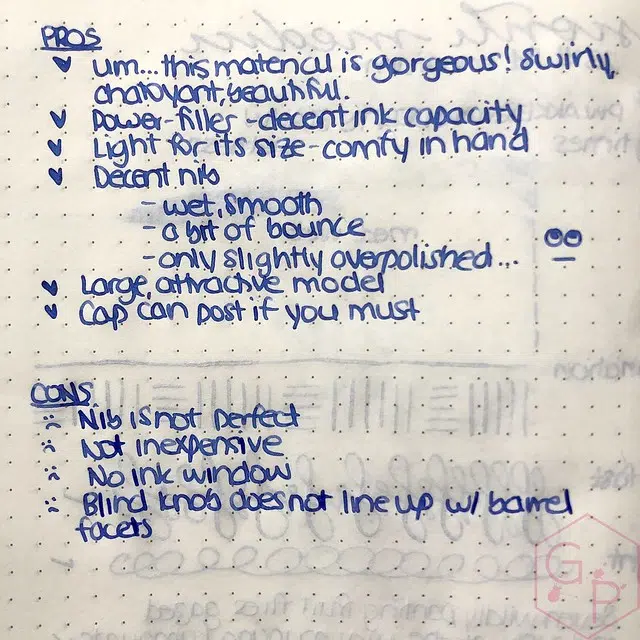 PROS
um... this material is gorgeous! Swirly,
chatoyant, beautiful.
Power-filler - decent ink capacity
Light for its size - comfy in hand
Decent nib
- wet, smooth
- a bit of bounce
- only slightly overpolished...
Large, attractive model
Cap can post if you must
CONS
Nib is not perfect
Not inexpensive
No ink window
Blind knob does not line up w/ barrel
facets
G P